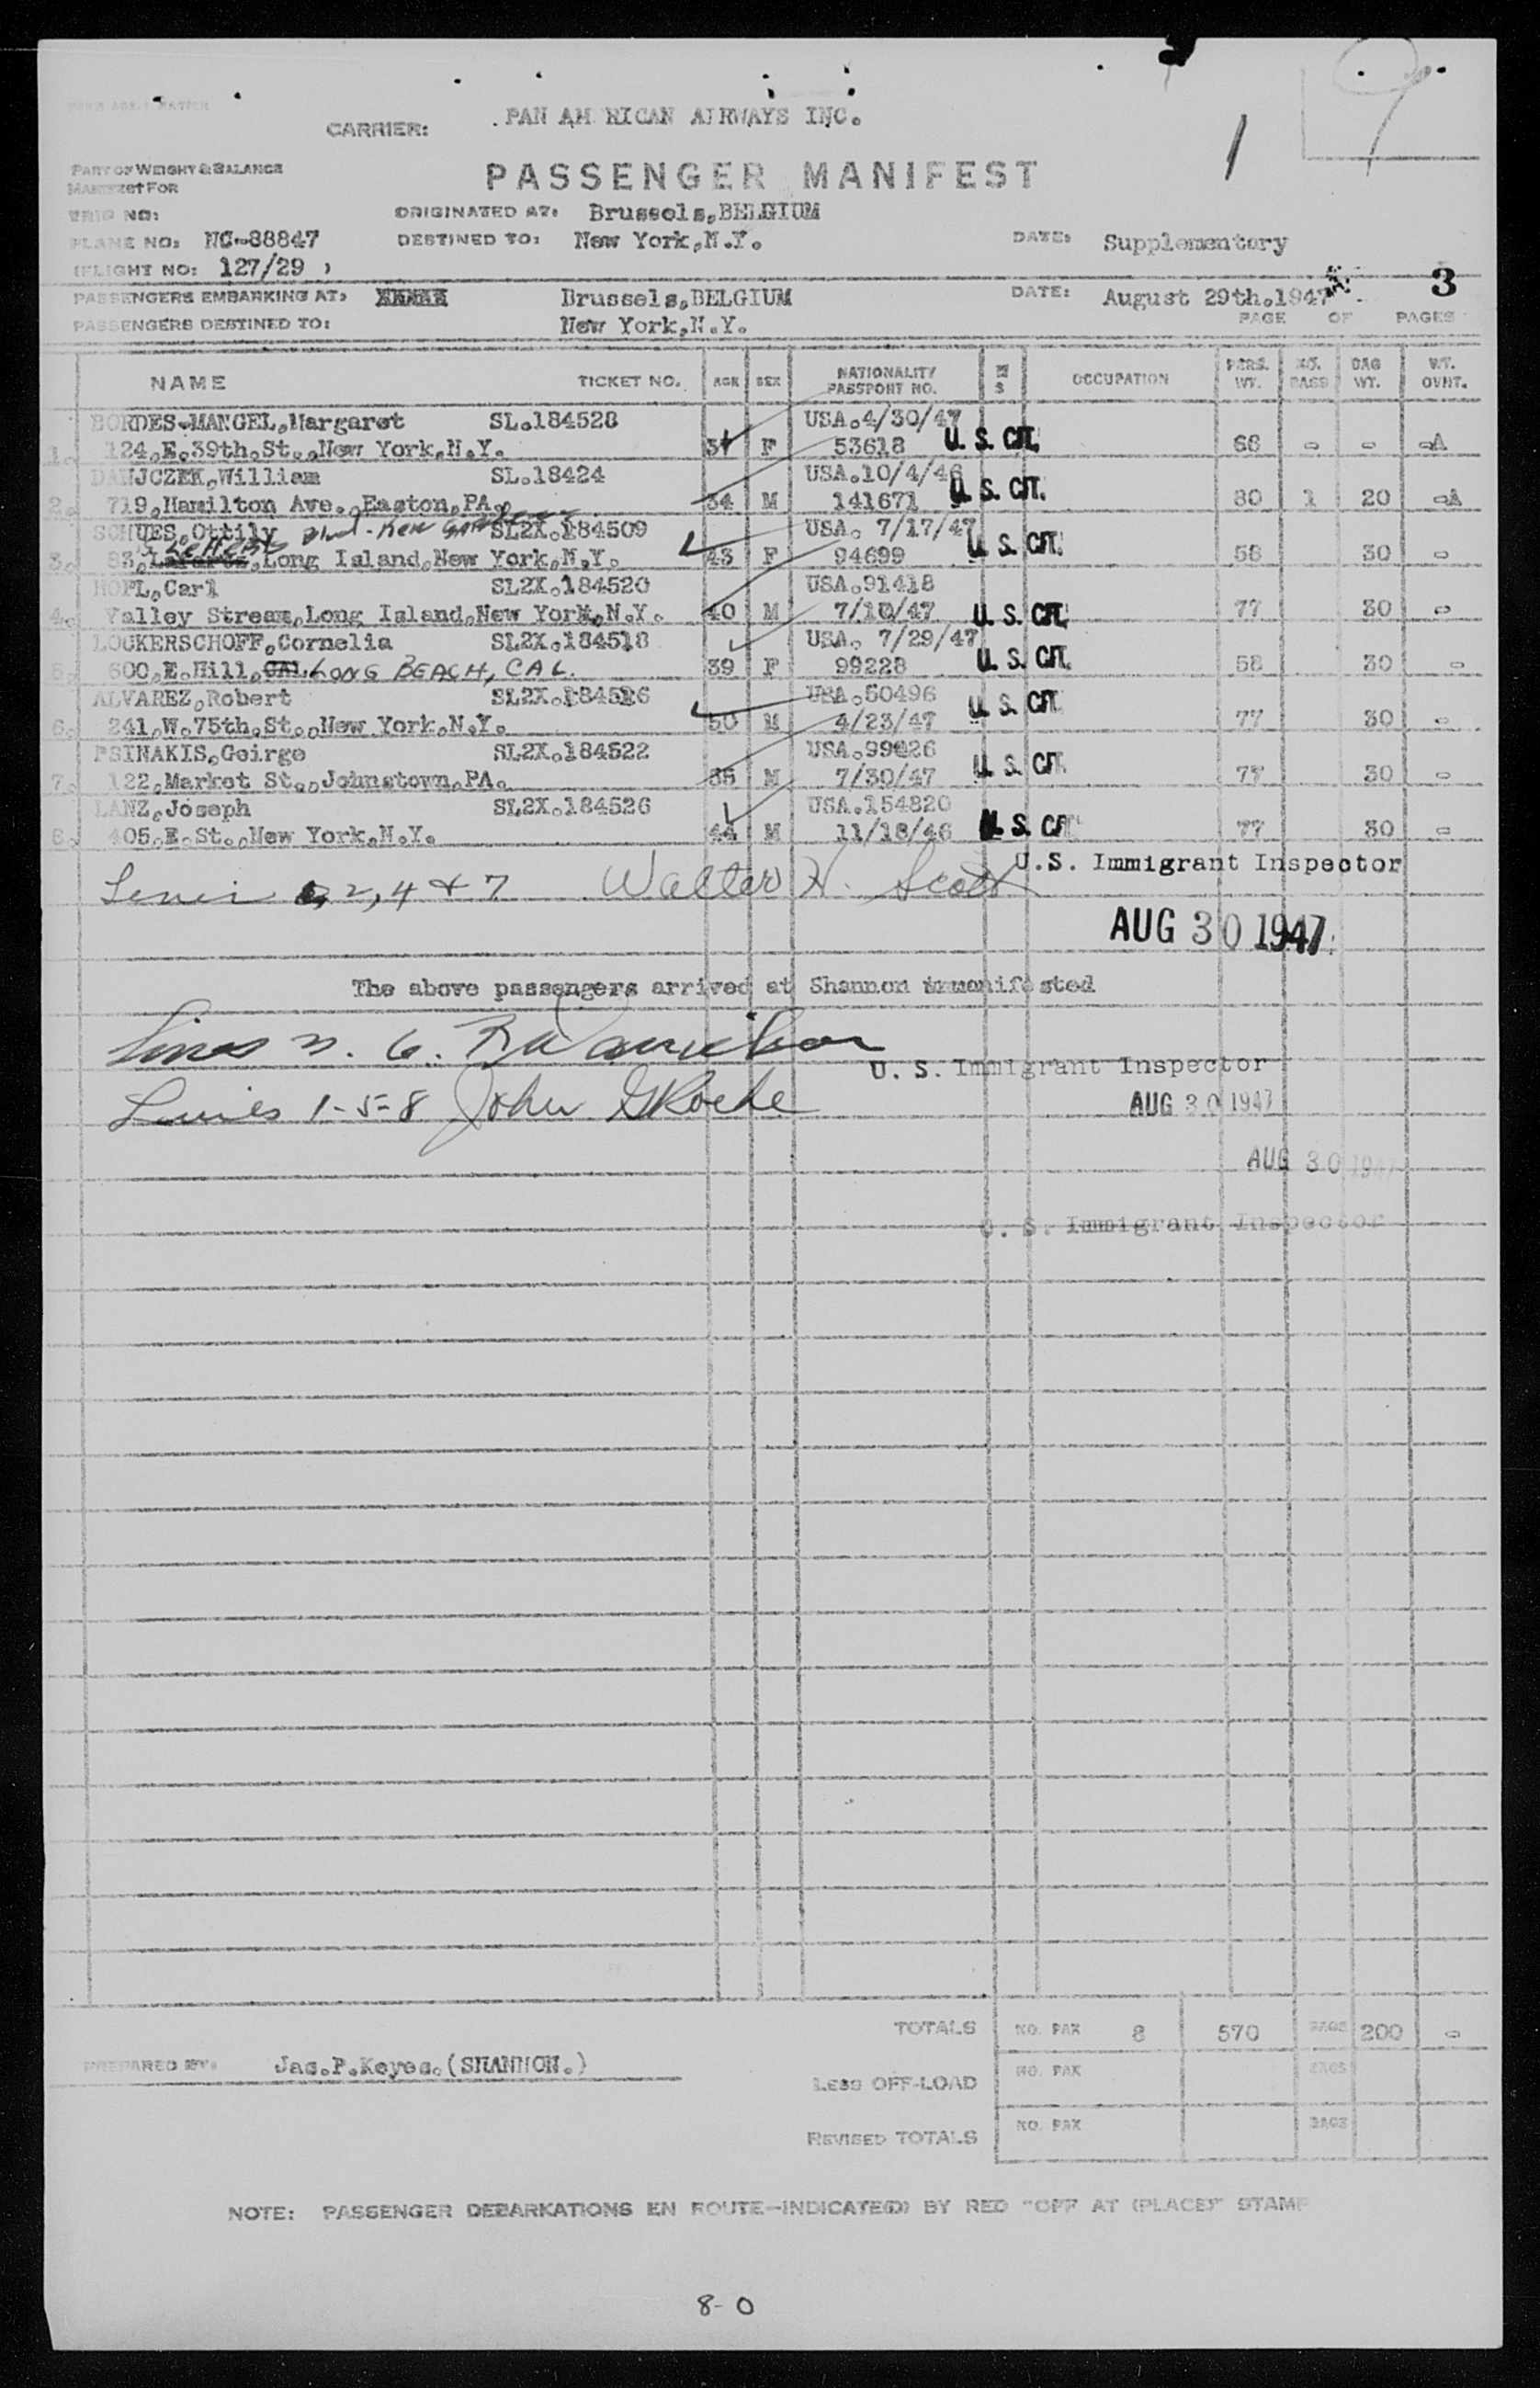 CARRIER: PAN AM RICAN AIRWAYS INC.
1 9
PART OF WEIGHT & BALANCE
MANIFEST FOR
PASSENGER MANIFEST
TRIP NO:
ORIGINATED AT: Brussels,BELGIUM
PLANE NO: NC-88847 DESTINED TO: New York,N.Y. DATE: Supplementory
(FLIGHT NO: 127/29 )
PASSENGERS EMBARKING AT: Brussels,BELGIUM DATE: August 29th.1947 3
PASSENGERS DESTINED TO: New York,N.Y. PAGE OF PAGES
NAME TICKET NO. AGE SEX NATIONALITY PASSPORT NO. M S OCCUPATION PERS. WT. NO. BAGS BAG WT. WT. OVNT.
BORDES-MANGEL,Margaret SL.184528 USA.4/30/47
1. 124,E.39th.St.,New York,N.Y. F 53618 U. S. CIT. 68 - - -A
DANJCZEK,William SL.18424 USA.10/4/46
2. 719,Hamilton Ave.,Easton,PA. 34 M 141671 U. S. CIT. 80 1 20 -A
SCHUES,Ottily Blvd - Kew Gardens SL2X.184509 USA. 7/17/47
3. 83, Lefferts,Long Island,New York,N.Y. 43 F 94699 U. S. CIT. 58 30 -
HOFL,Carl SL2X.184520 USA.91418
4. Valley Stream,Long Island,New York,N.Y. 40 M 7/10/47 U. S. CIT. 77 30 -
LOCKERSCHOFF,Cornelia SL2X.184518 USA. 7/29/47
5. 600,E.Hill,CAL. LONG BEACH, CAL. 39 F 99228 U. S. CIT. 58 30 -
ALVAREZ,Robert SL2X.184516 USA.50496
6. 241,W.75th.St.,New York,N.Y. 50 M 4/23/47 U. S. CIT. 77 30 -
PSINAKIS,Goirge SL2X.184522 USA.99026
7. 122,Market St.,Johnstown,PA. 35 M 7/30/47 U. S. CIT. 77 30 -
LANZ,Joseph SL2X.184526 USA.154820
8. 405,E.St.,New York,N.Y. 44 M 11/18/46 U. S. CIT. 77 30 -
2, 4 & 7 Walter H. Scott U.S. Immigrant Inspector
AUG 30 1947
The above passengers arrived at Shannon unmanifested
Lines 3. 6.
U. S. Immigrant Inspector
Lines 1-5-8 John G Roche AUG 30 1947
AUG 30 1947
U. S. Immigrant Inspector
TOTALS NO. PAX 8 570 BAGS 200 -
PREPARED BY: Jas.P.Keyes.(SHANNON.)
NO. PAX BAGS
LESS OFF-LOAD
REVISED TOTALS NO. PAX BAGS
NOTE: PASSENGER DEBARKATIONS EN ROUTE-INDICATE(D) BY RED "OFF AT (PLACE)" STAMP
8-0